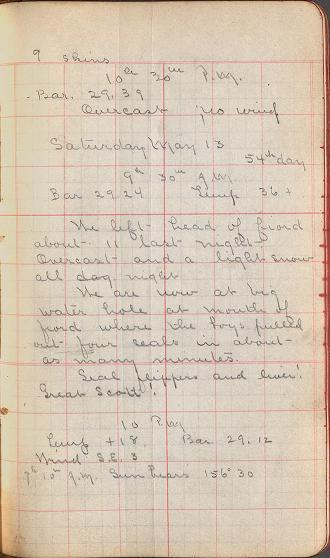 9 skins
10h 30m P.M.
Bar. 29.39
Overcast No wind
Saturday May 13
54th day
9h 30m A.M.
Bar 29.24 Temp 36+
We left head of fiord
about 11 last night
Overcast and a light snow
all day night
We are now at big
water hole at mouth of
fiord where the boys pulled
out four seals in about
as many minutes.
Seal flippers and liver!
Great Scott!
10 P.M.
Temp +18. Bar. 29.12
Wind S.E. 3
10m A.M. Sun bears 156° 30